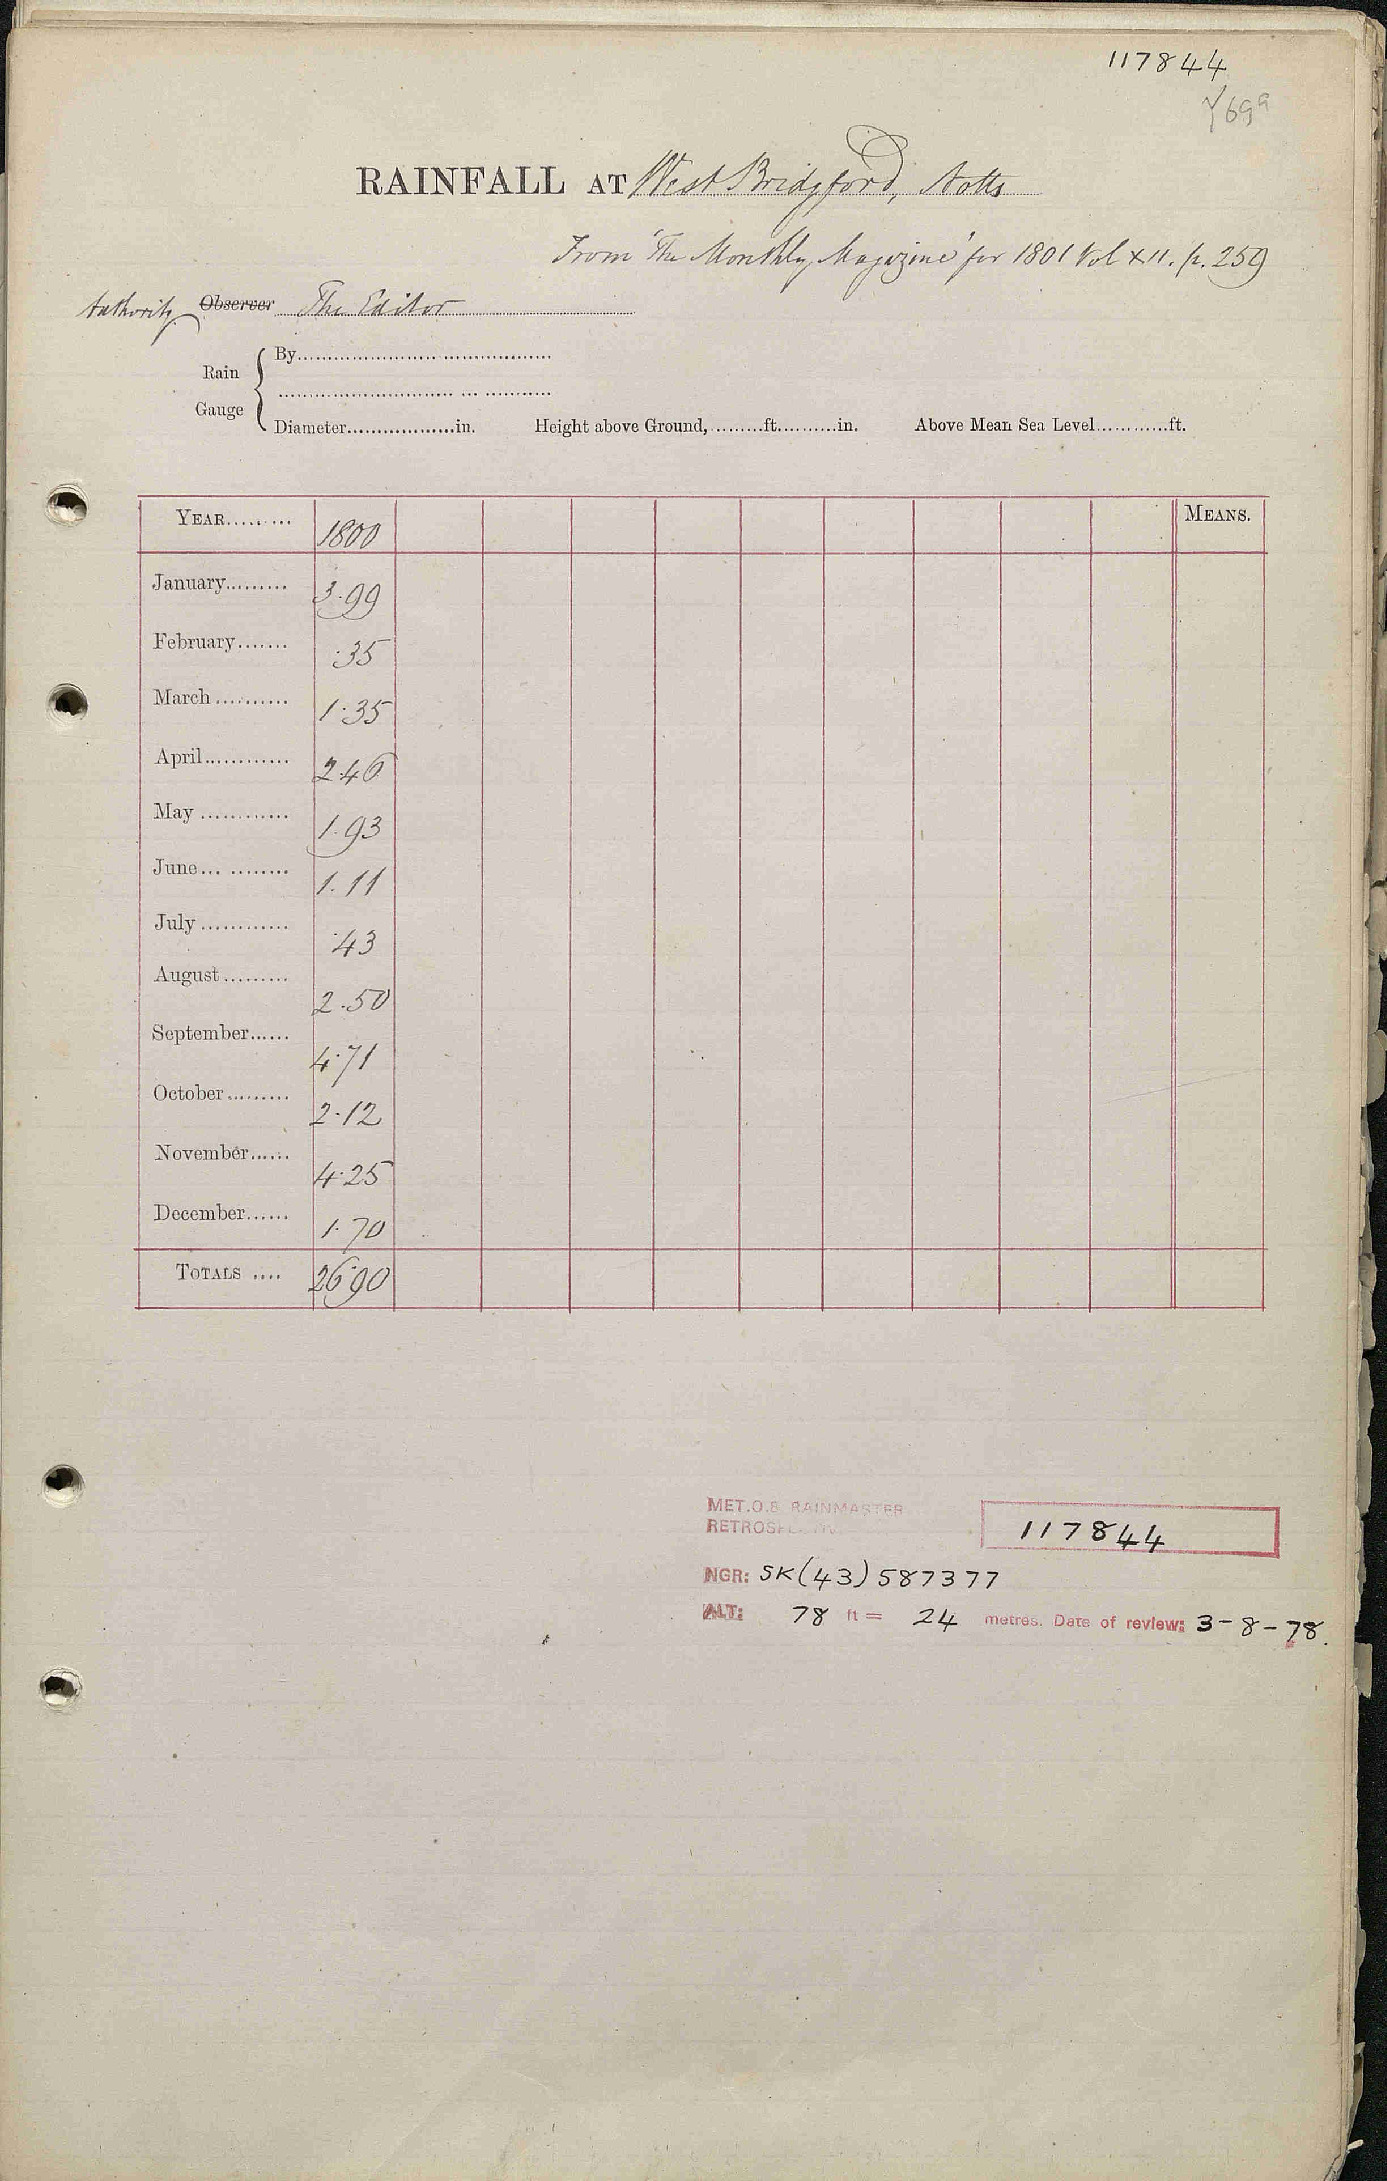 117844
RAINFALL AT West Bridgford, Notts
From 'The Monthly Magazine' for 1801 Vol XII. p. 259
Authority Observer The Editor
Rain Gauge
By
Diameter in. Height above Ground, ft. in. Above Mean Sea Level ft.
YEAR 1800 MEANS.
January 3.99
February .35
March 1.35
April 2.46
May 1.93
June 1.11
July .43
August 2.50
September 4.71
October 2.12
November 4.25
December 1.70
TOTALS 26.90
MET.O.8 RAINMASTER
117844
NGR: SK(43)587377
ALT: 78 ft = 24 metres. Date of review: 3-8-78.